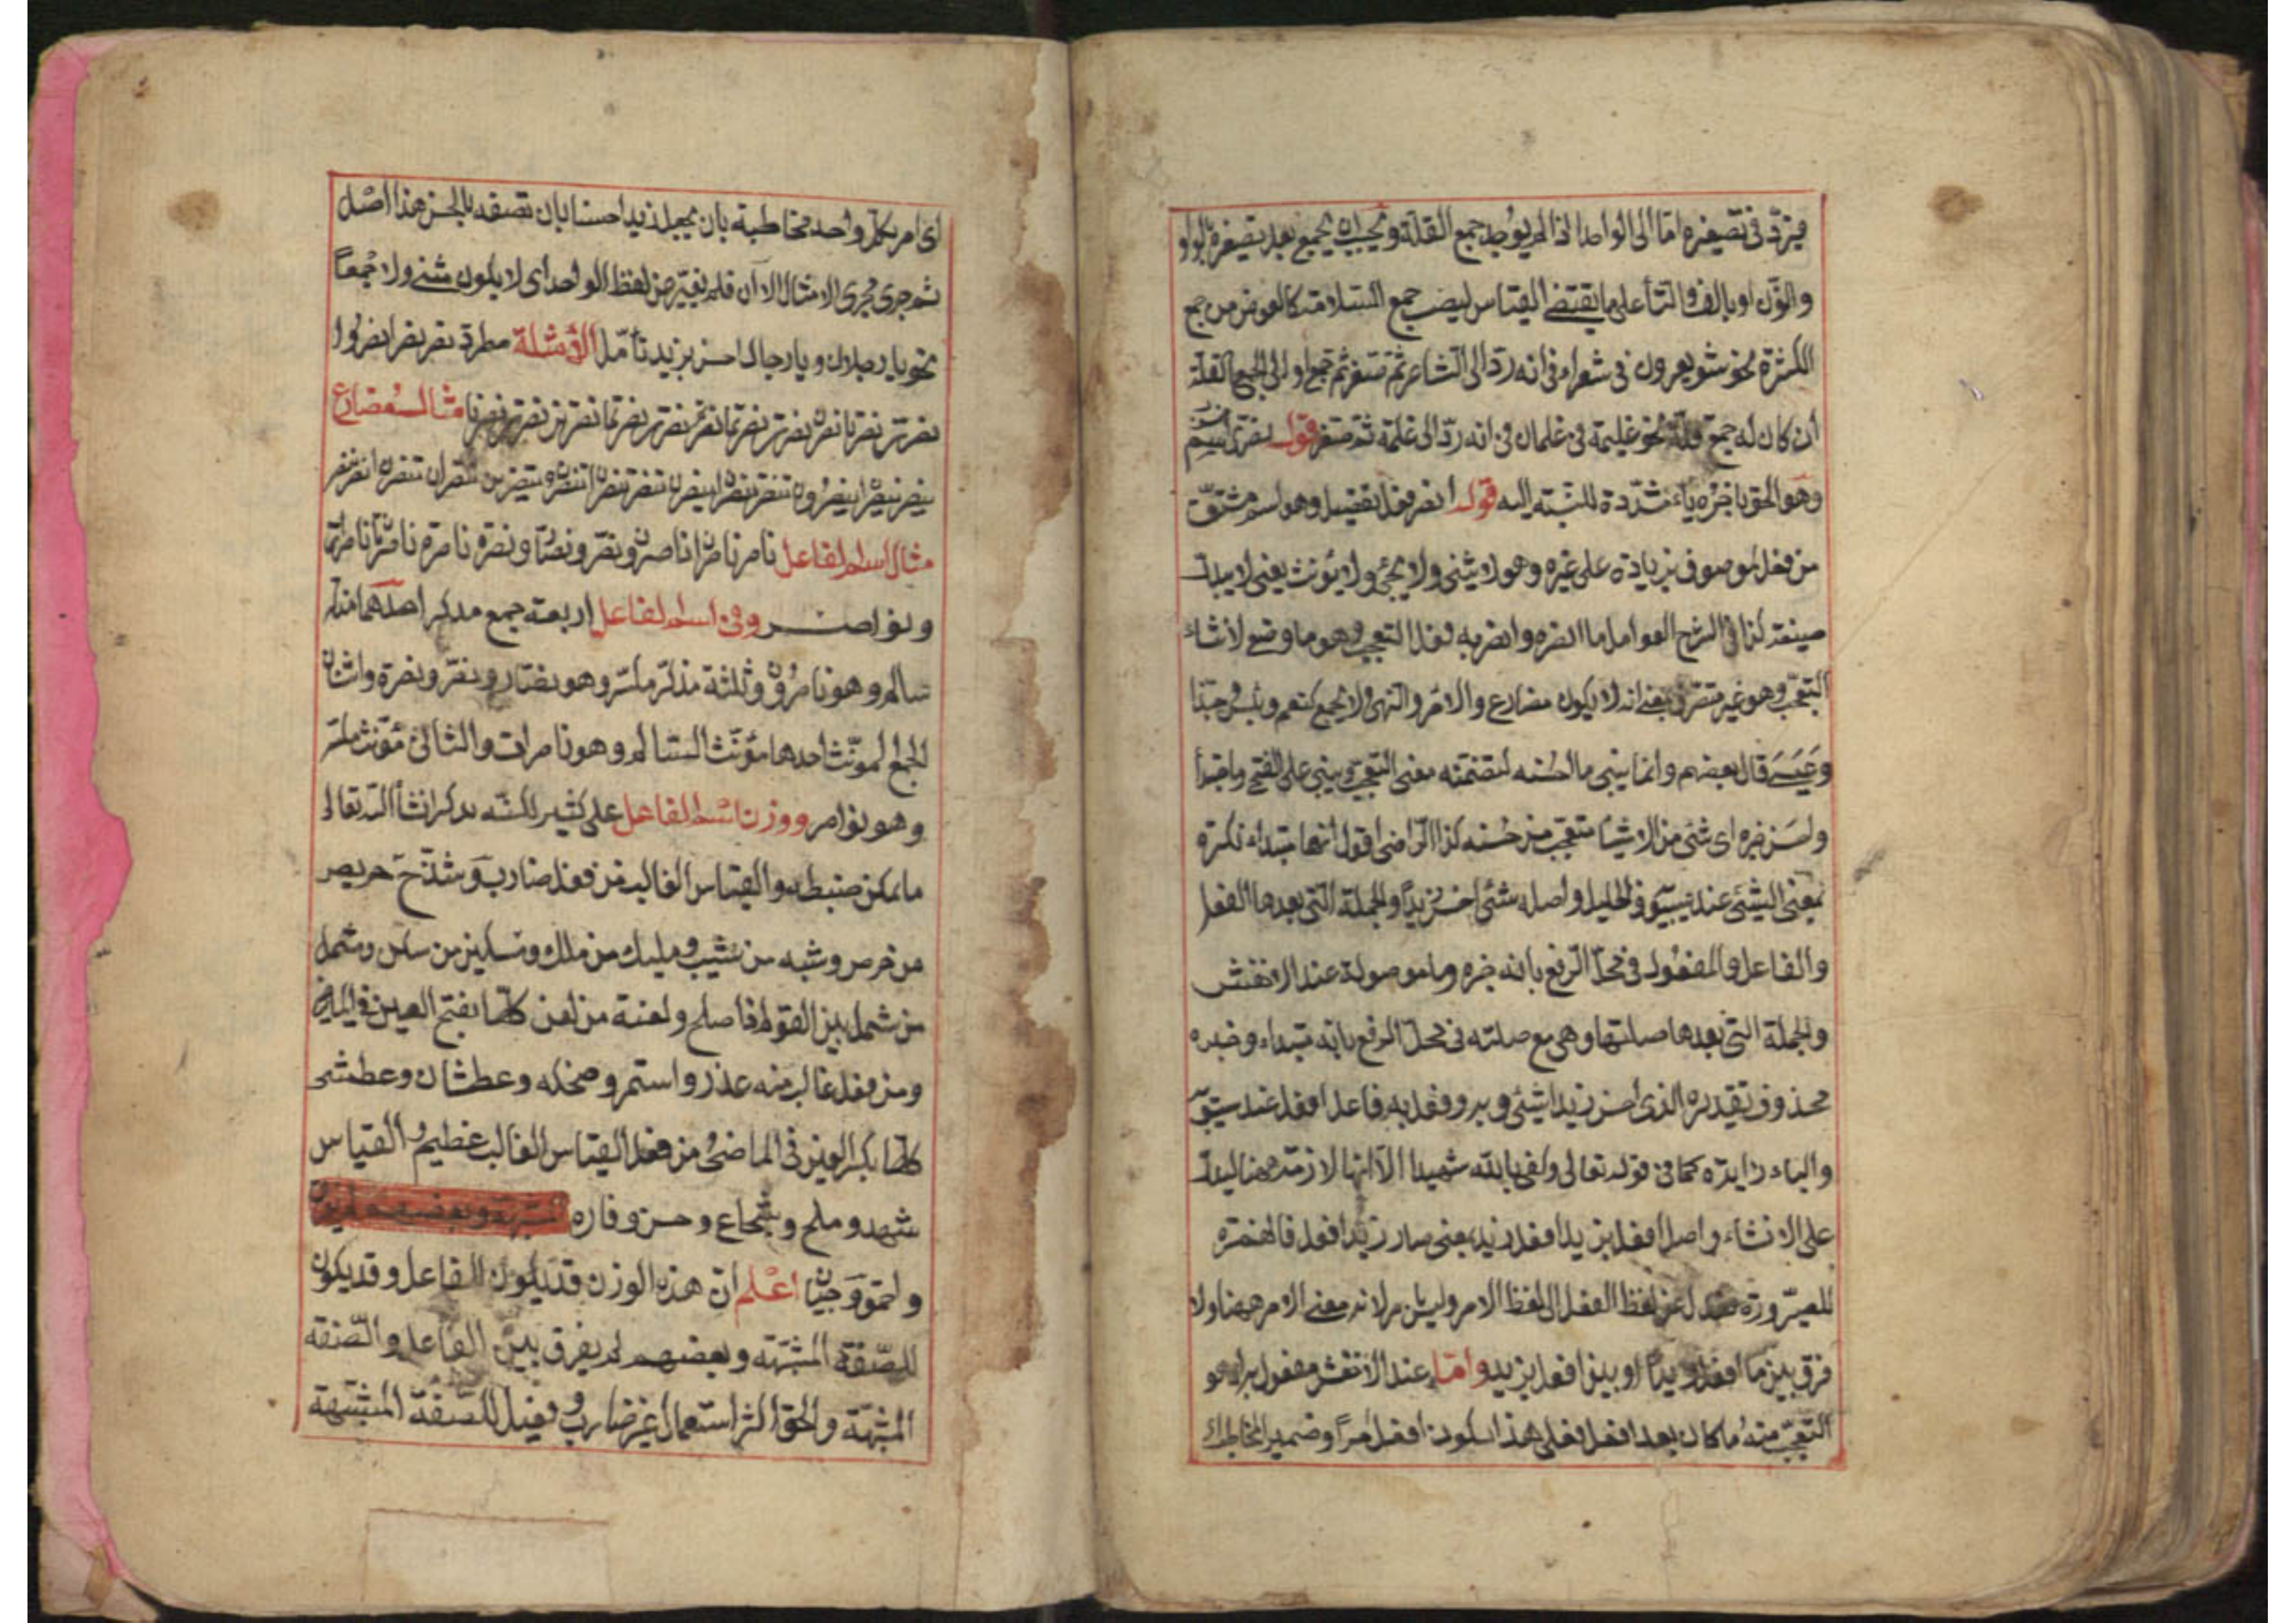 فيردّ في تصغيره امّا الى الواحد اذا لم يوجد جمع القلة ويجب ان يجمع بعد تصغيره بالواو
والنّون او بالالف والتّاء على ما يقتضے القياس ليصير جمع السّلامة كالعوض من جمع
الكثرة نحو شويعرون في شعراء في انه ردّ الى الشاعر ثم صغر ثم جمع او الى الجمع القلة
ان كان له جمع قلة نحو غليمة في غلمان في انه ردّ الى غلمة ثم صغر قوله نصريّ اسم
وهو الحق باخره ياء مشدّدة للنسبة اليه قوله انصر فعل تفضيل وهو اسم مشتق
من فعل لموصوف بزيادة على غيره وهو لا يثنى ولا يجمع ولا يؤنث يعنى لا يبدل
صيغته كذا في الشرح العوامل ما انصره وانصر به فعلا التعجب وهو ما وضع لانشاء
التعجّب وهو غير متصرّف يعنے انه لا يكون مضارع والامر والنهى ولا يجمع كنعم وبئس وحبّذا
وعَسَے قال بعضهم وانما يبنى ما احسنه لتضمنه معنى التعجب ويبنى على الفتح وما مبتدأ
واحسن خبره اى شئ من الاشياء متعجب من حسنه كذا الرّاضى اقول انها مبتداء نكرة
بمعنى الشئ عند سيبويه والخليل واصله شئ احسن زيداً والجملة التى بعدها الفعل
والفاعل والمفعول في محلّ الرّفع بانه خبره وما موصولة عند الاخفش
والجملة التى بعدها صلتها وهى مع صلته في محلّ الرفع بانه مبتداء وخبره
محذوف تقديره الذى احسن زيدا شئ وبه فاعل افعل عند سيبويه
والباء زايدة كما في قوله تعالى وكفى بالله شهيدا الّا انها لازمة هنا ليدلّ
على الانشاء واصل افعل بزيد افعل زيد يعنى صار زيدا فعل فالهمزة
للصيرورة عن لفظ الفعل الى لفظ الامر وليس بامر لانه معنى الامر ههنا ولا
فرق بين ما افعل زيداً او بين افعل بزيد وامّا عند الاخفش مفعول به اى هو
التعجّب منه ما كان بعد افعل فعلى هذا يكون افعل امراً وضمير المخاطب
اى امر بكلّ واحد مخاطبة بان يجعل زيدا حسنا بان تصفه بالحسن هذا اصله
ثم جرى مجرى الامثال الّا ان فلم يغيّر عن لفظ الواحد اى لا يكون مثنے ولا جمعاً
نحو يا رجلان ويا رجال احسن بزيد تأمّل الأمثلة مطردة نصر نصرا نصروا
نصرت نصرتا نصرن نصرت نصرتما نصرتم نصرت نصرتما نصرتن نصرت نصرنا مثال مضارع
ينصر ينصران ينصرون تنصر تنصران ينصرن تنصر تنصران تنصرون تنصرين تنصران تنصرن انصر ننصر
مثال اسم الفاعل ناصر ناصران ناصرون ونصّر ونصّار ونصرة ناصرة ناصرتان ناصرات
ونواصــر وفي اسم الفاعل اربعة جمع مذكر احدهما مذكر
سالم وهو ناصرون وثلثة مذكّر مكسّر وهو نصّار ونصّر ونصرة واثنان
الجمع المونّث احدها مؤنّث السالم وهو ناصرات والثانى مؤنث مكسّر
وهو نواصر ووزن اسم الفاعل على كثير لكنّه نذكر انشأ اللّه تعالى
ما يمكن ضبطه والقياس الغالب من فعل ضارب وشذّ حريص
من حرص وشبه من شيب ومليك من ملك
من شمل بين القوم اذا صلح ولعنة من لعن كلّها بفتح العين في الماضى
ومن فعل غالب منه عذر واستمر وضحكه وعطشان وعطشى
كلّها بكسر العين في الماضى ومن فعل القياس الغالب عظيم والقياس
شهد وملح وشجاع وحسن وفاره
واحمق وجبان اعلم انّ هذه الوزن قد يكون الفاعل وقد يكون
للصّفة المشبّهة وبعضهم لم يفرق بين الفاعل والصّفة
المشبّهة والحق اكثر استعمال غير ضارب وفعيل للصّفة المشبّهة